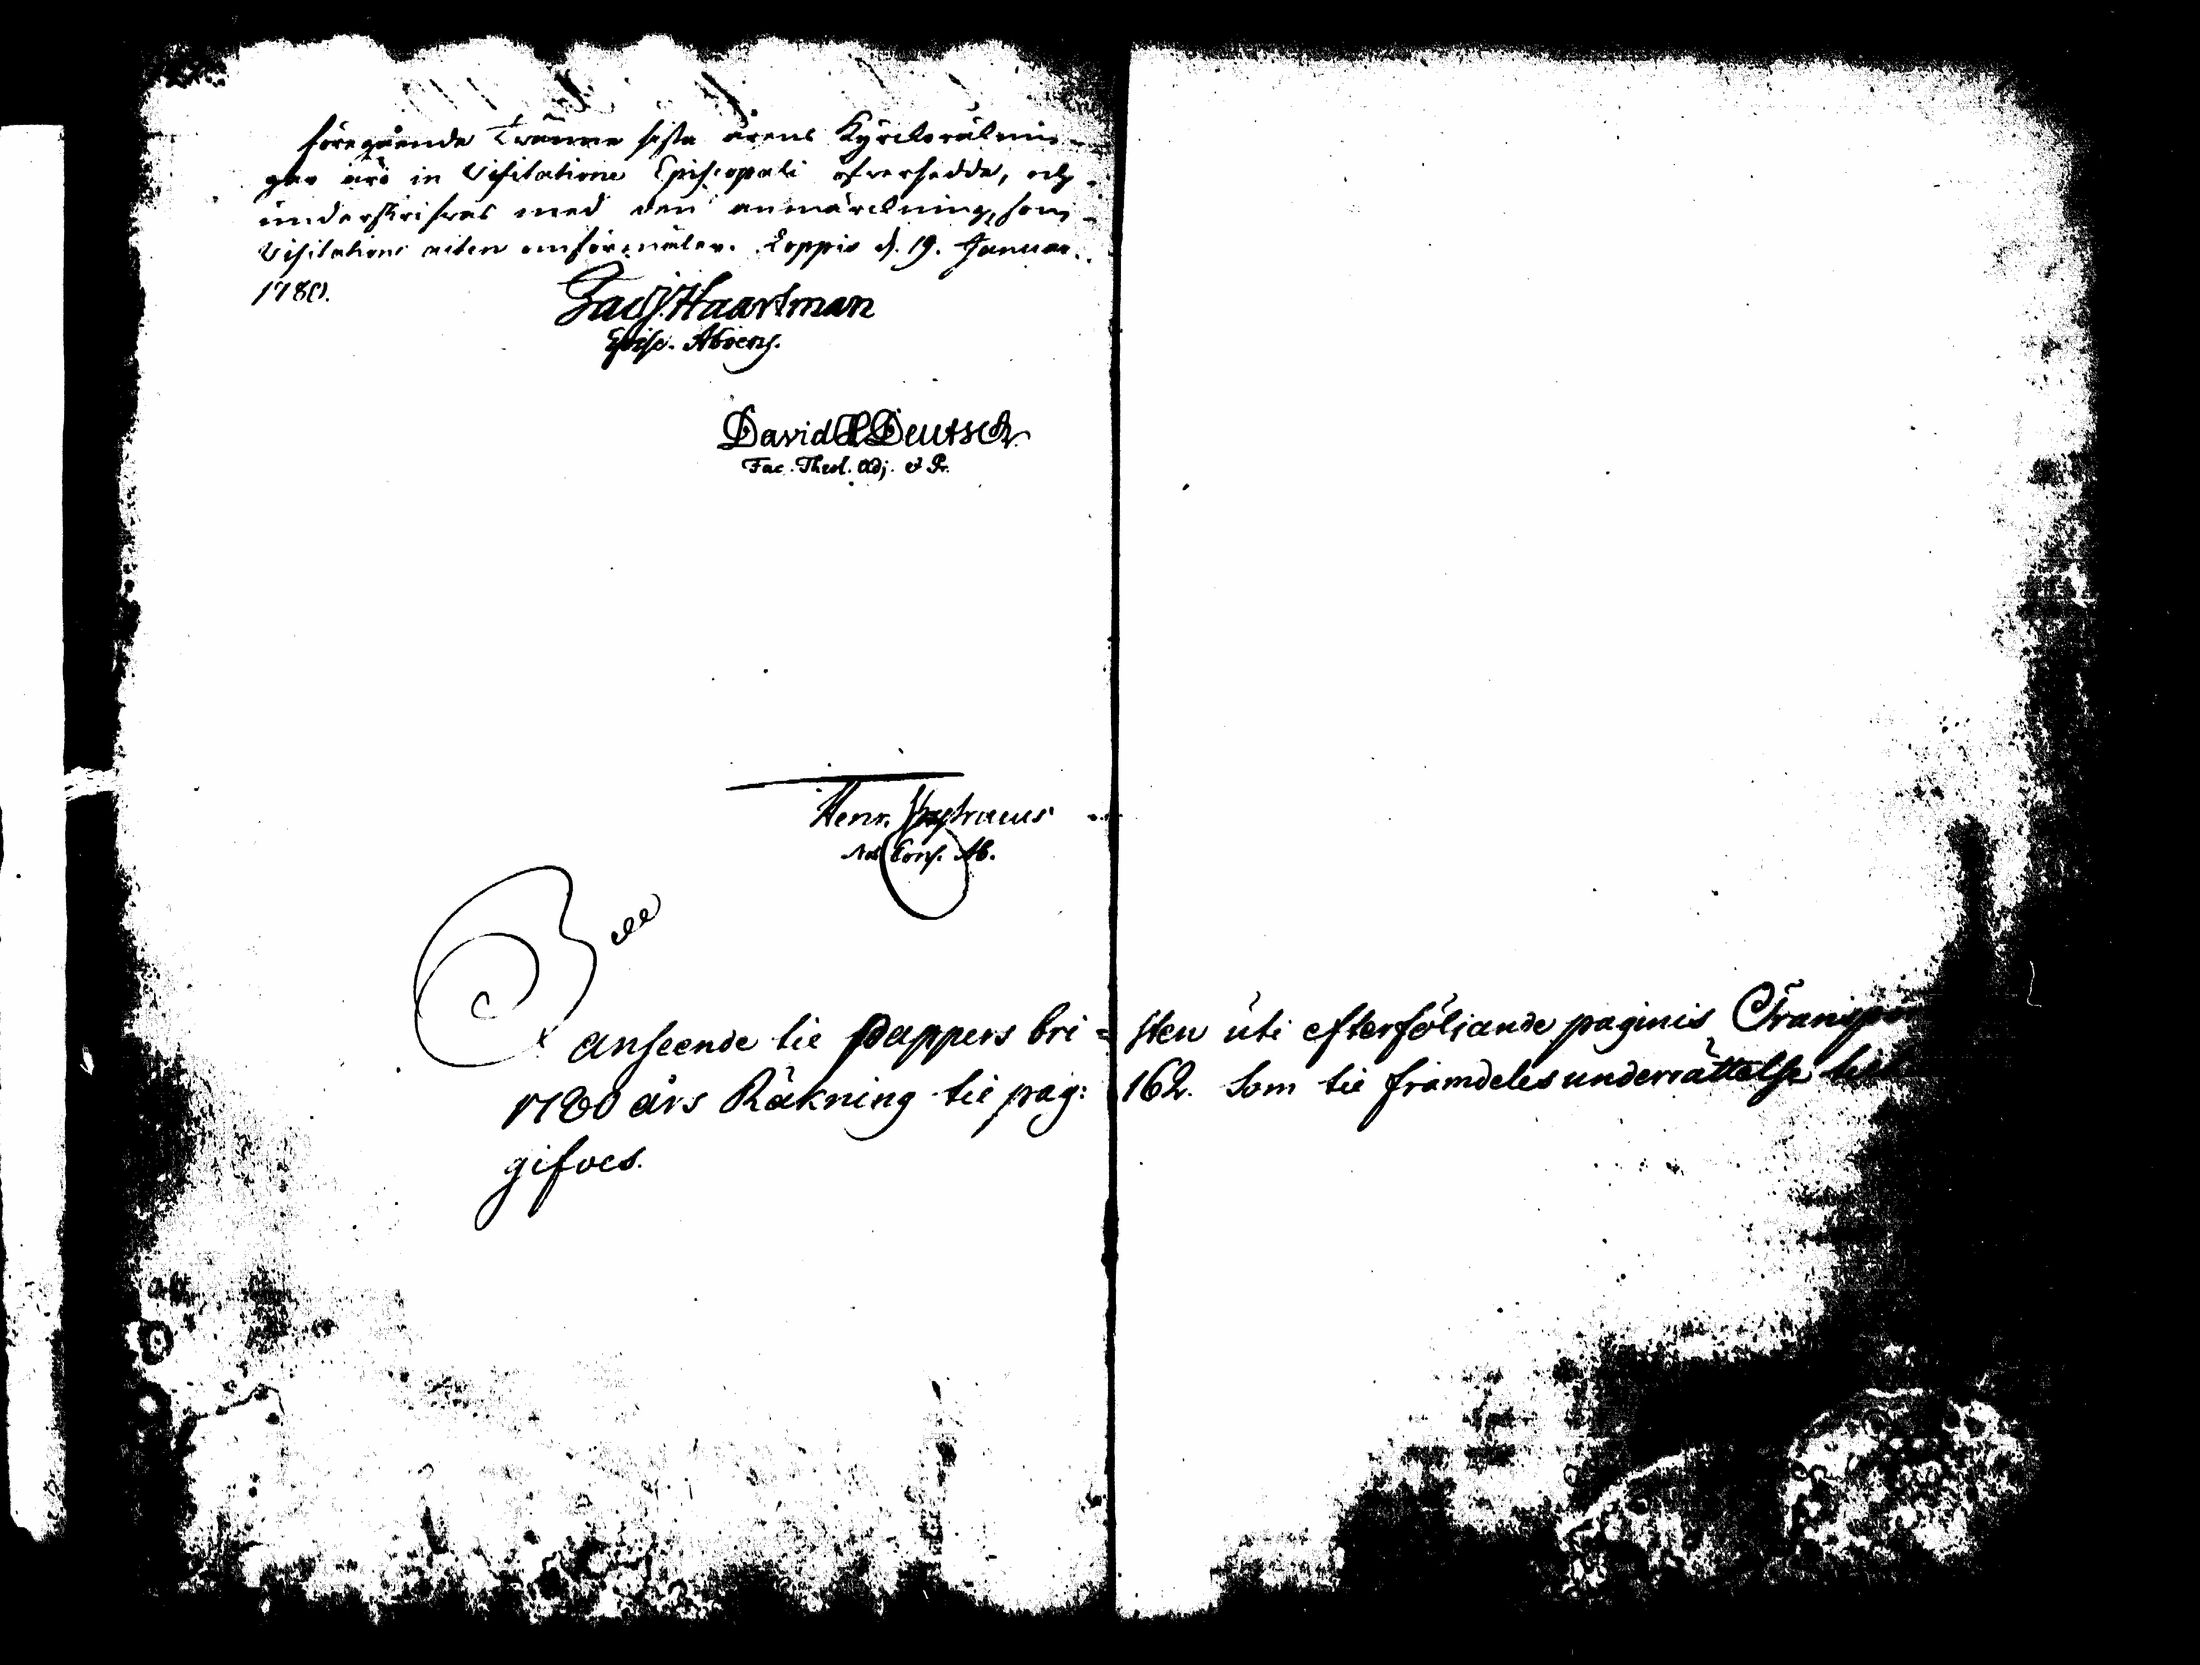 föregående Tränne sista årens Kyrckoräknin-
gar äro in Visitatione Episcopali öfversedde, och
underskrifvas med den anmärckning, som
Visitations acten omförmäler. Loppis d. 19. Januar.
1780.
Zach. Haartman
Episc. Aboens.
David Deutsch
Fac. Theol. Adj. & Pr.
Henr.
Not. Cons. Ab.
anseende til pappers bri= sten uti efterföljande paginis Transpor
1780 års Räkning til pag: 162. som til framdeles underrättelse
gifves.